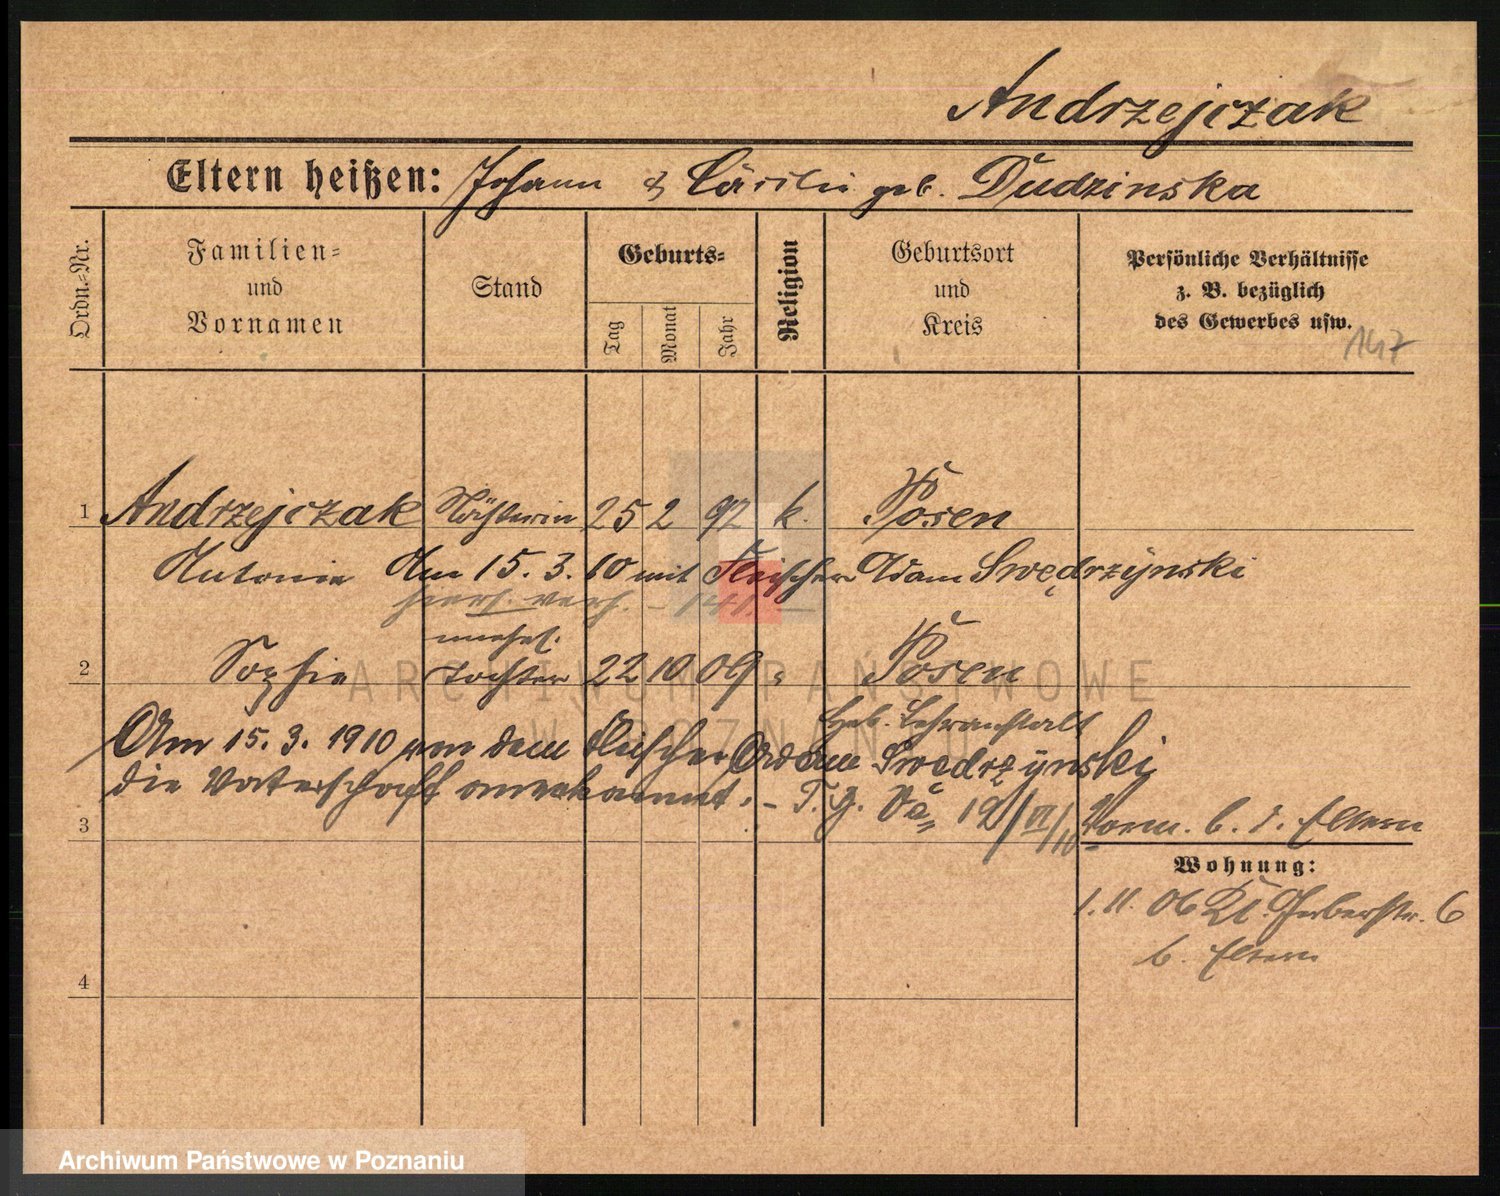 Andrzejczak
Eltern heißen: Johann & Cäcilie geb. Dudzinska
Ordn.-Nr.
Familien-
und
Vornamen
Stand
Geburts-
Tag
Monat
Jahr
Religion
Geburtsort
und
Kreis
Persönliche Verhältnisse
z. B. bezüglich
des Gewerbes usw.
147
1 Andrzejczak 25 2 92 k. Posen
Antonie Am 15. 3. 10 mit Fleischer Adam Swędrzynski
hiers. verh. - 141. -
unehel.
2 Sophie Tochter 22 10 09 " Posen
Heb. Lehranstalt
Am 15. 3. 1910 von dem Fleischer Adam Swędrzynski
die Vaterschaft anerkannt. - T. G. 12/VI/10
3
Vorm. b. d. Eltern
Wohnung:
1. 11. 06 Kl. Gerberstr. 6
b. Eltern
4
ARCHIWUM PAŃSTWOWE
W POZNANIU
Archiwum Państwowe w Poznaniu